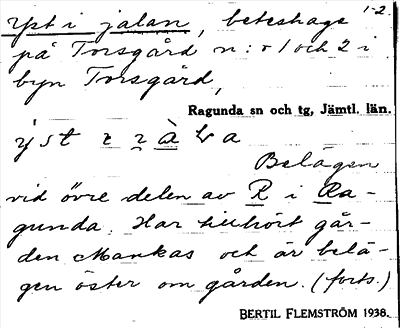 Yst i jalan, beteshage 1-2.
på Torsgård n:r 1 och 2 i
byn Torsgård,
Ragunda sn och tg, Jämtl. län.
Belägen
vid övre delen av R i Ra-
gunda. Har tillhört går-
den Mankas och är belä-
gen öster om gården. (forts.)
BERTIL FLEMSTRÖM 1938.